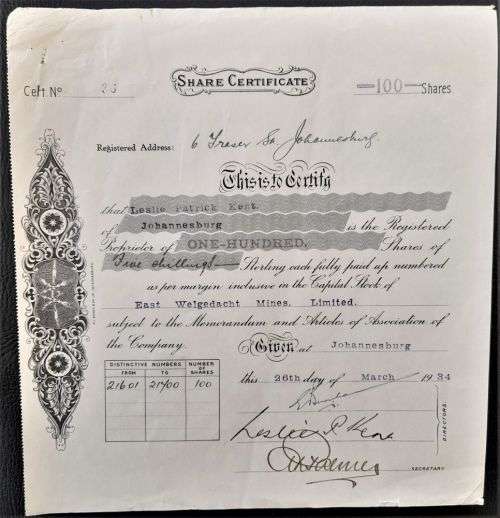 SHARE CERTIFICATE
Cert No 23
100 Shares
Registered Address: 6 Fraser St Johannesburg
This is to Certify
that Leslie Patrick Kent.
of Johannesburg is the Registered
Proprietor of ONE-HUNDRED. Shares of
Five shillings Sterling each fully paid up numbered
as per margin inclusive in the Capital Stock of
East Welgedacht Mines, Limited.
subject to the Memorandum and Articles of Association of
the Company.
Given at Johannesburg
this 26th day of March 1934
DISTINCTIVE NUMBERS NUMBER OF SHARES
FROM TO
21601 21700 100
Leslie P. Kent
DIRECTORS.
SECRETARY.